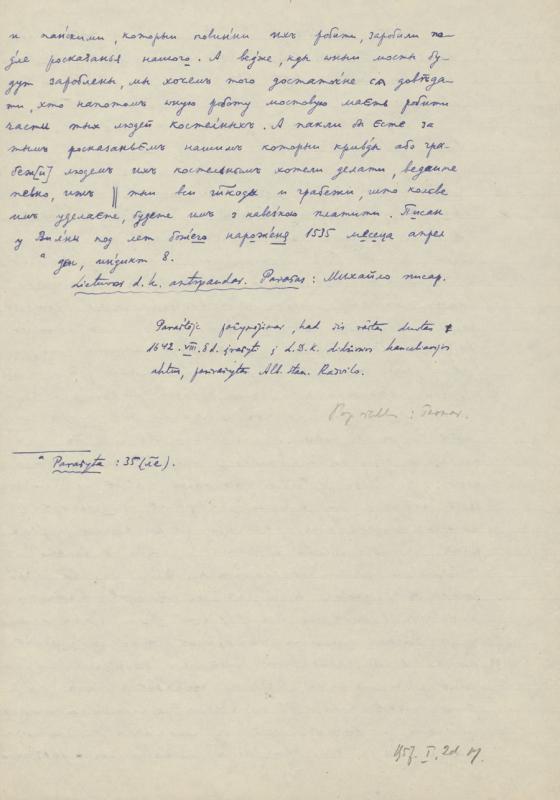 и панскими, которыи повинни ихъ робити, заробили по-
дле росказанья нашого. А ведже, кды иныи мосты бу-
дут зароблены, мы хочемъ того достаточне ся довѣда-
ти, хто напотомъ иную роботу мостовую маеть робити
части тыхъ людей костелныхъ. А пакли бы есте за
тымъ росказаньемъ нашимъ которыи кривды або гра-
беж[и] людемъ ихъ костельнымъ хотели делати, ведаите
певно, ижъ || тыи вси шкоды и грабежи, што колве
имъ уделаете, будете имъ з навезкою платити. Писан
у Вилни под лет божего нарожения 1535 месеца апрел
ª ден, индикт 8.
Lietuvos d. k. antspaudas. Parašas: Михайло писар.
Paraštėje pažymėjimas, kad šis raštas duotas
1642.VIII.8 d. įrašyti į L.D.K. didžiosios kanceliarijos
aktus, pasirašytas Alb. Stan. Radvilo.
ª Parašyta: 35 (ле).
1957. I. 2d